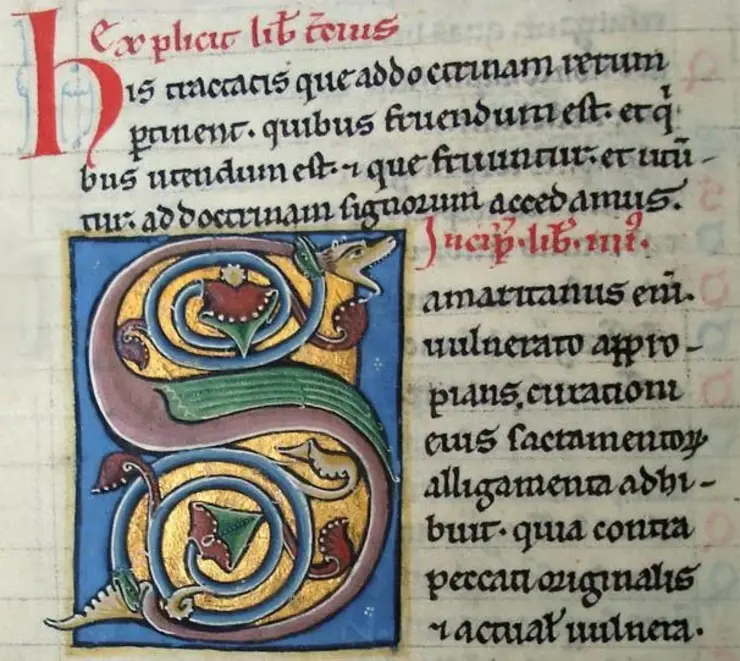 Explicit lib̄ t̄cius
His tractatis que ad doctrinam rerum
ꝑtinent. quibus fruendum est. et qͥ
bus utendum est. ⁊ que fruuntur. et utū-
tur. ad doctrinam signorum accedamus.
Incip̄. lib̄. iiiiꝰ.
Samaritanus eni̅.
uulnerato app̱ro-
pians, curationi
eius sacramentoꝝ
alligamenta adhi-
buit. quia contra
peccati originalis
⁊ actual̄ uulnera.